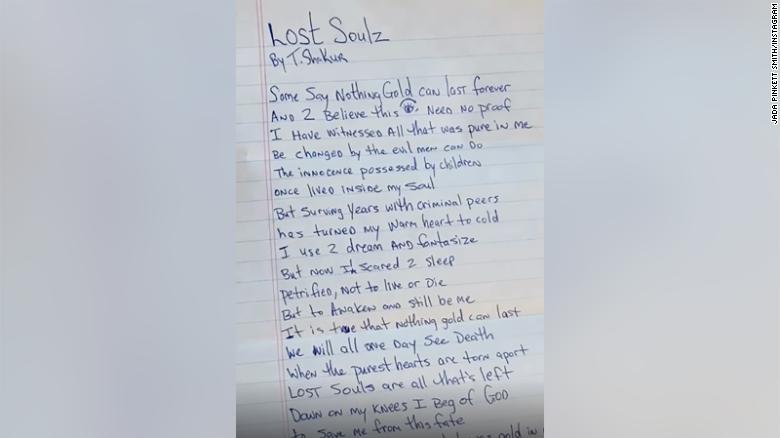 Lost Soulz
By T. Shakur
Some Say Nothing Gold can last forever
AND 2 Believe this 👁 Need No proof
I Have witnessed All that was pure in me
Be changed by the evil men can Do
The innocence possessed by children
once lived inside my soul
But surving years with criminal peers
has turned my warm heart to cold
I use 2 dream AND fantasize
But now I'm scared 2 sleep
petrified, not to live or Die
But to Awaken and still be me
It is true that nothing gold can last
We will all one Day See Death
When the purest hearts are torn apart
LOST Souls are all that's left
Down on my knees I Beg of GOD
to save me from this fate
gold in
JADA PINKETT SMITH/INSTAGRAM